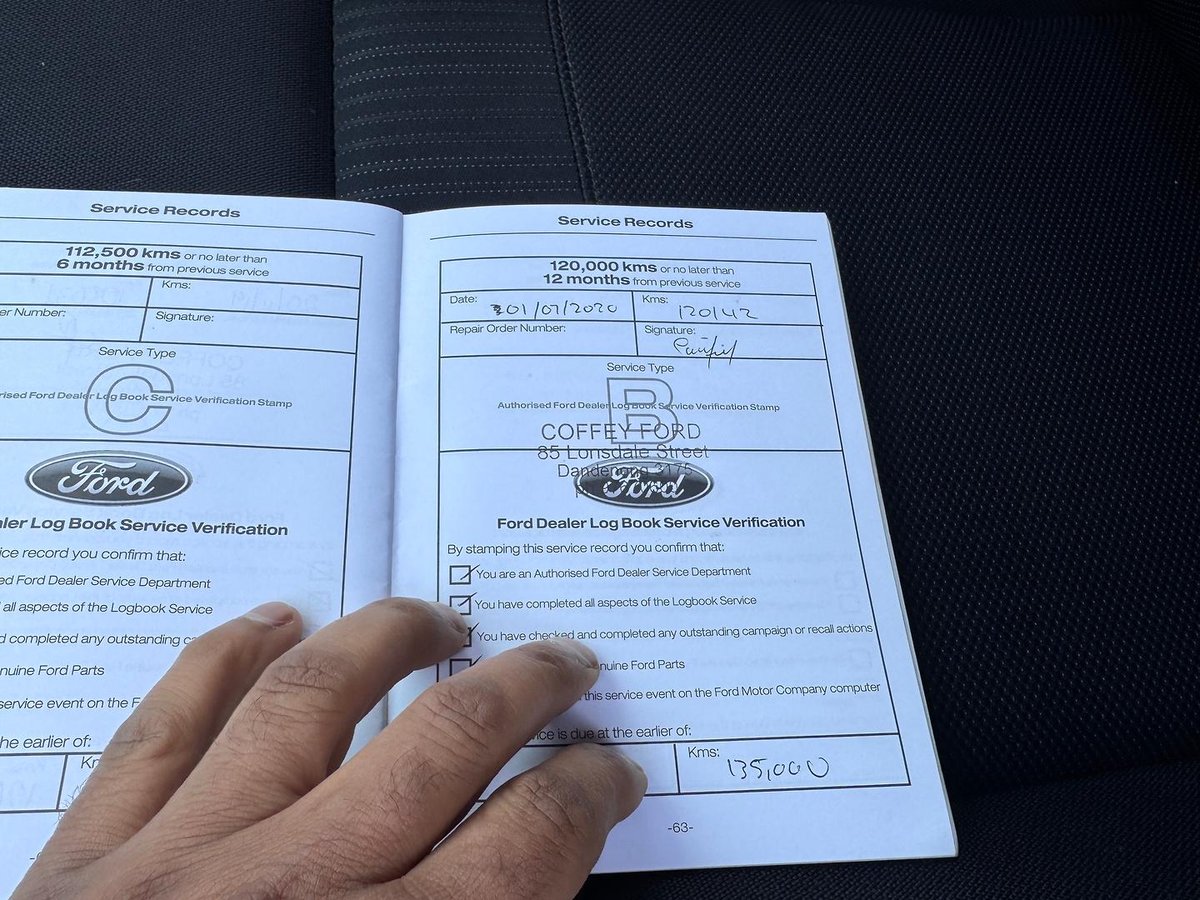 Service Records
112,500 kms or no later than
6 months from previous service
Kms:
er Number:
Signature:
Service Type
C
rised Ford Dealer Log Book Service Verification Stamp
Ford
aler Log Book Service Verification
ice record you confirm that:
ed Ford Dealer Service Department
all aspects of the Logbook Service
d completed any outstanding
nuine Ford Parts
service event on the F
he earlier of:
Service Records
120,000 kms or no later than
12 months from previous service
Date: 01/07/2020
Kms: 120142
Repair Order Number:
Signature:
Service Type
B
Authorised Ford Dealer Log Book Service Verification Stamp
COFFEY FORD
85 Lonsdale Street
Dandenong 3175
Ford
Ford Dealer Log Book Service Verification
By stamping this service record you confirm that:
You are an Authorised Ford Dealer Service Department
You have completed all aspects of the Logbook Service
You have checked and completed any outstanding campaign or recall actions
nuine Ford Parts
this service event on the Ford Motor Company computer
ice is due at the earlier of:
Kms: 135,000
-63-